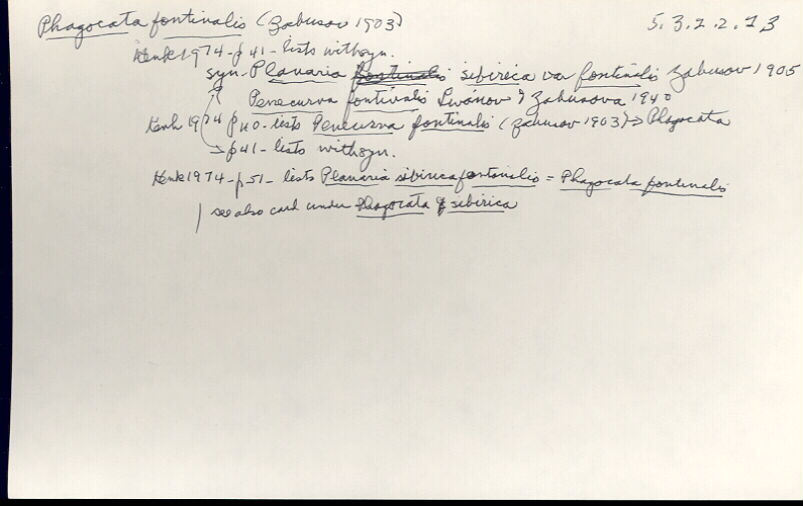 Phagocata fontinalis (Zabusov 1903) 5.3.2.2.13
Kenk 1974 - p 41 - lists withsyn.
syn - Planaria fontinalis sibirica var fontinalis Zabusov 1905
Penecurva fontinalis Livanov & Zabusova 1940
Kenk 1974 p 40 - lists Penecurva fontinalis (Zabusov 1903) → Phagocata
→ p41 - lists withsyn.
Kenk 1974 - p 51 - lists Planaria sibirica fontinalis = Phagocata fontinalis
see also card under Phagocata sibirica